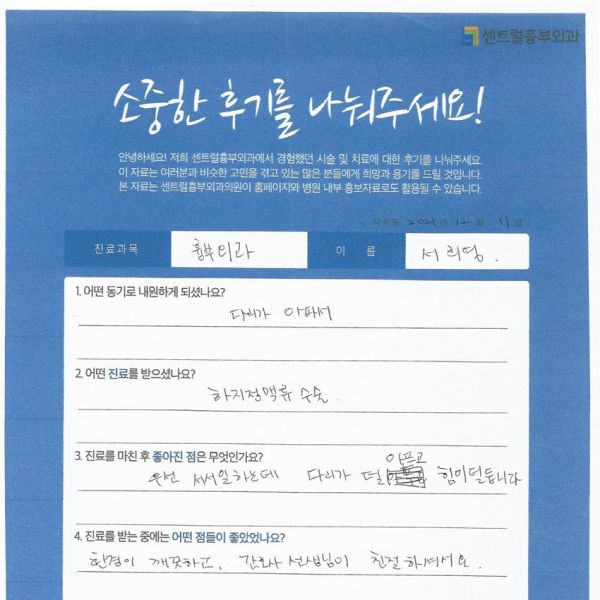 센트럴흉부외과
소중한 후기를 나눠주세요!
안녕하세요! 저희 센트럴흉부외과에서 경험했던 시술 및 치료에 대한 후기를 나눠주세요.
이 자료는 여러분과 비슷한 고민을 겪고 있는 많은 분들에게 희망과 용기를 드릴 것입니다.
본 자료는 센트럴흉부외과의원이 홈페이지와 병원 내부 홍보자료로도 활용될 수 있습니다.
작성일 2021년 12월 11일
진료과목 흉부외과 이 름 서희영.
1. 어떤 동기로 내원하게 되셨나요?
다리가 아파서
2. 어떤 진료를 받으셨나요?
하지정맥류 수술.
3. 진료를 마친 후 좋아진 점은 무엇인가요?
우선 서서일하는데 다리가 덜 아프고 힘이덜듭니다
4. 진료를 받는 중에는 어떤 점들이 좋았었나요?
환경이 깨끗하고, 간호사 선생님이 친절하셔서요.